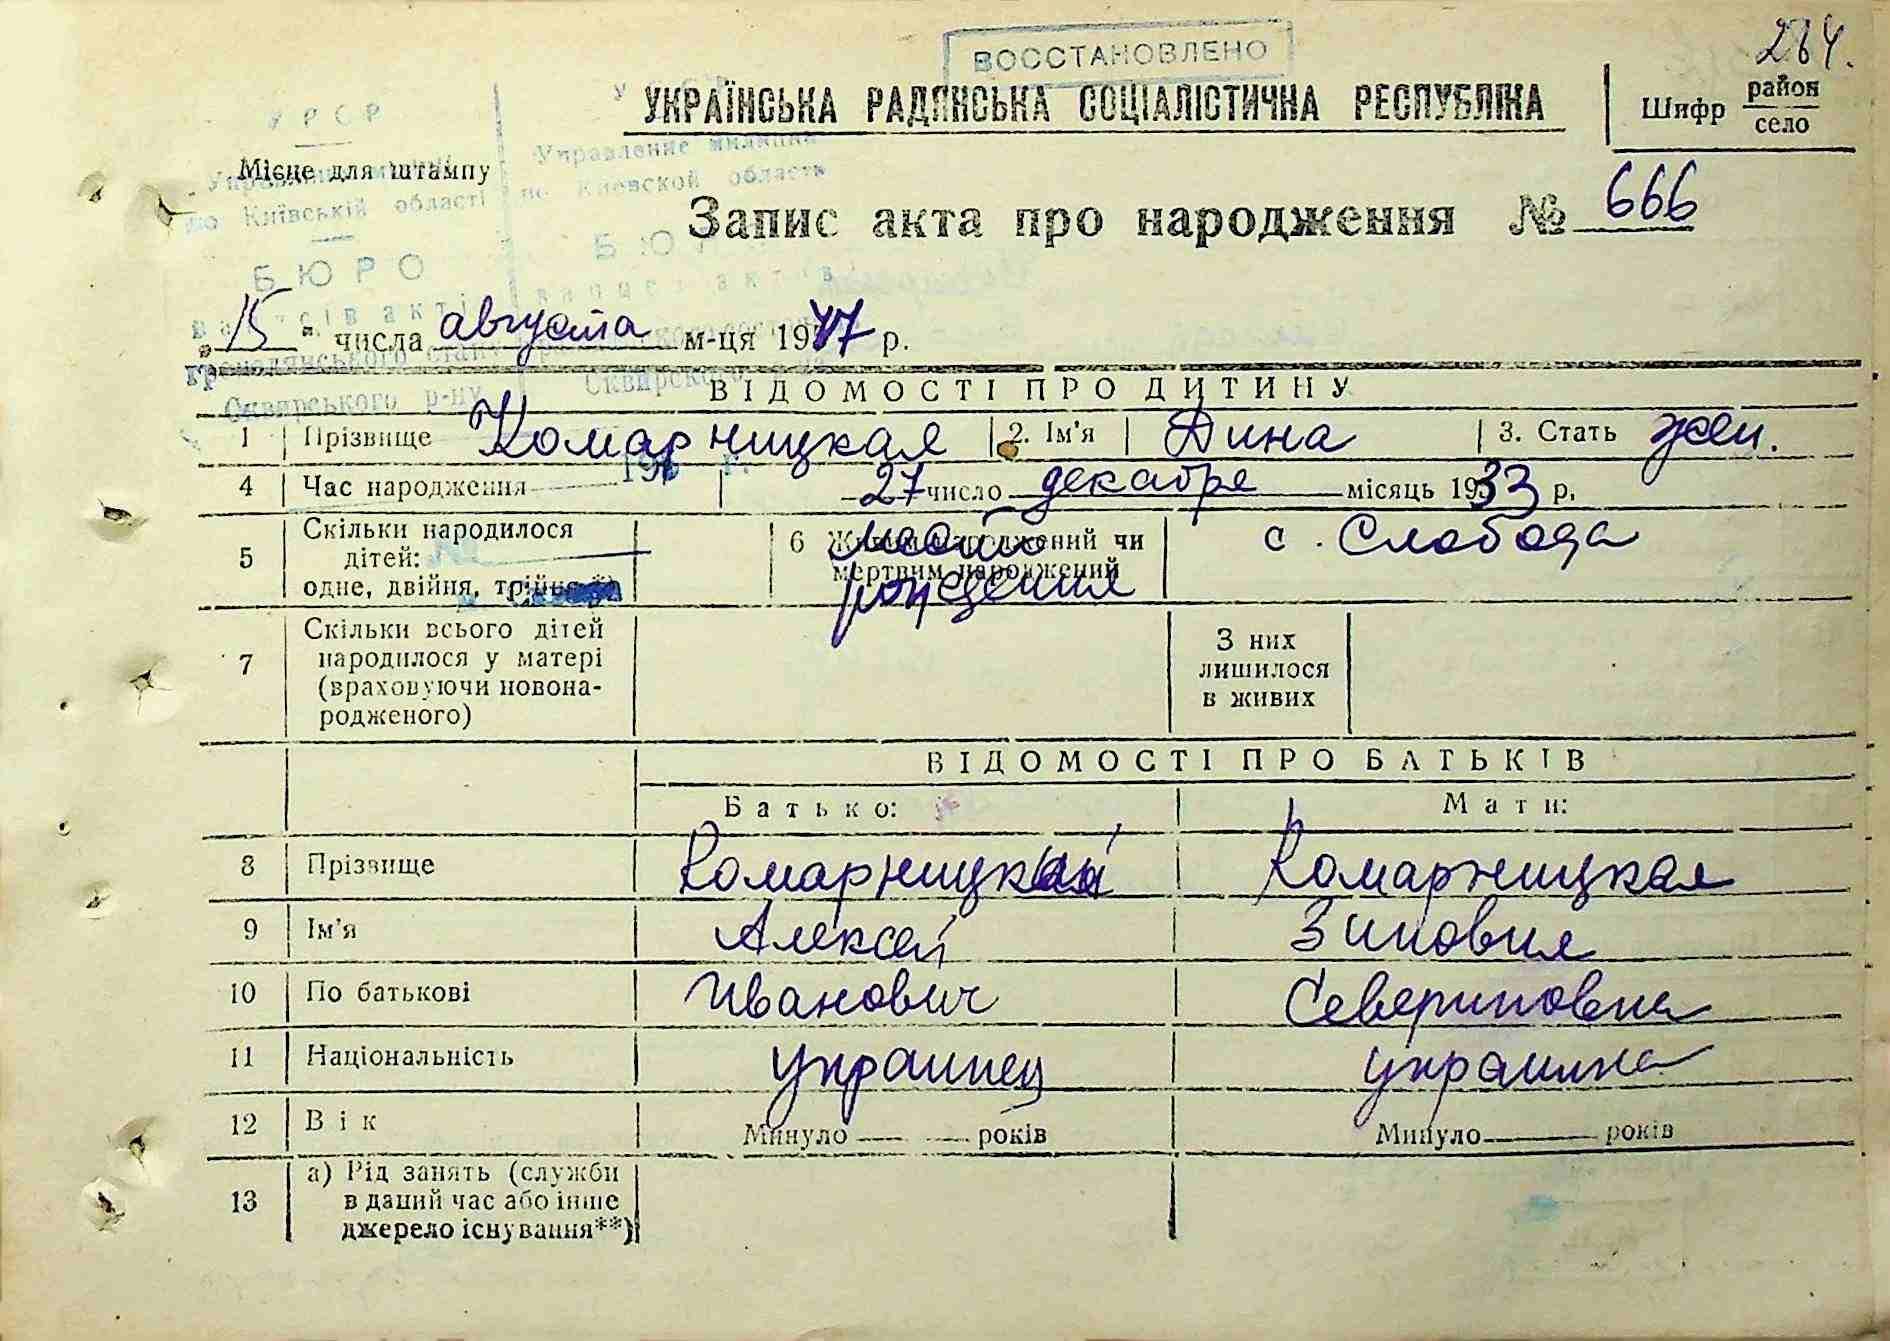 264.
ВОССТАНОВЛЕНО
УКРАЇНСЬКА РАДЯНСЬКА СОЦІАЛІСТИЧНА РЕСПУБЛІКА
Шифр район
село
УРСР
Місце для штампу
Управление милиции
по Київській області
по Киевской области
Запис акта про народження № 666
БЮРО
БЮРО
записів актів
„15" числа августа м-ця 1947 р.
Сквирського р-ну
Сквирского
ВІДОМОСТІ ПРО ДИТИНУ
1 Прізвище Комарницкая 2. Ім'я Дина 3. Стать жен.
4 Час народження 27 число декабря місяць 1933 р.
5 Скільки народилося дітей: одне, двійня, трійня *)
6 Живим народжений чи мертвим народжений
место рождения
с. Слобода
7 Скільки всього дітей народилося у матері (враховуючи новонародженого)
З них лишилося в живих
ВІДОМОСТІ ПРО БАТЬКІВ
Батько: Мати:
8 Прізвище Комарницкий Комарницкая
9 Ім'я Алексей Зиновия
10 По батькові Иванович Севериновна
11 Національність украинец украинка
12 Вік Минуло років Минуло років
13 а) Рід занять (служби
в даний час або інше
джерело існування**)